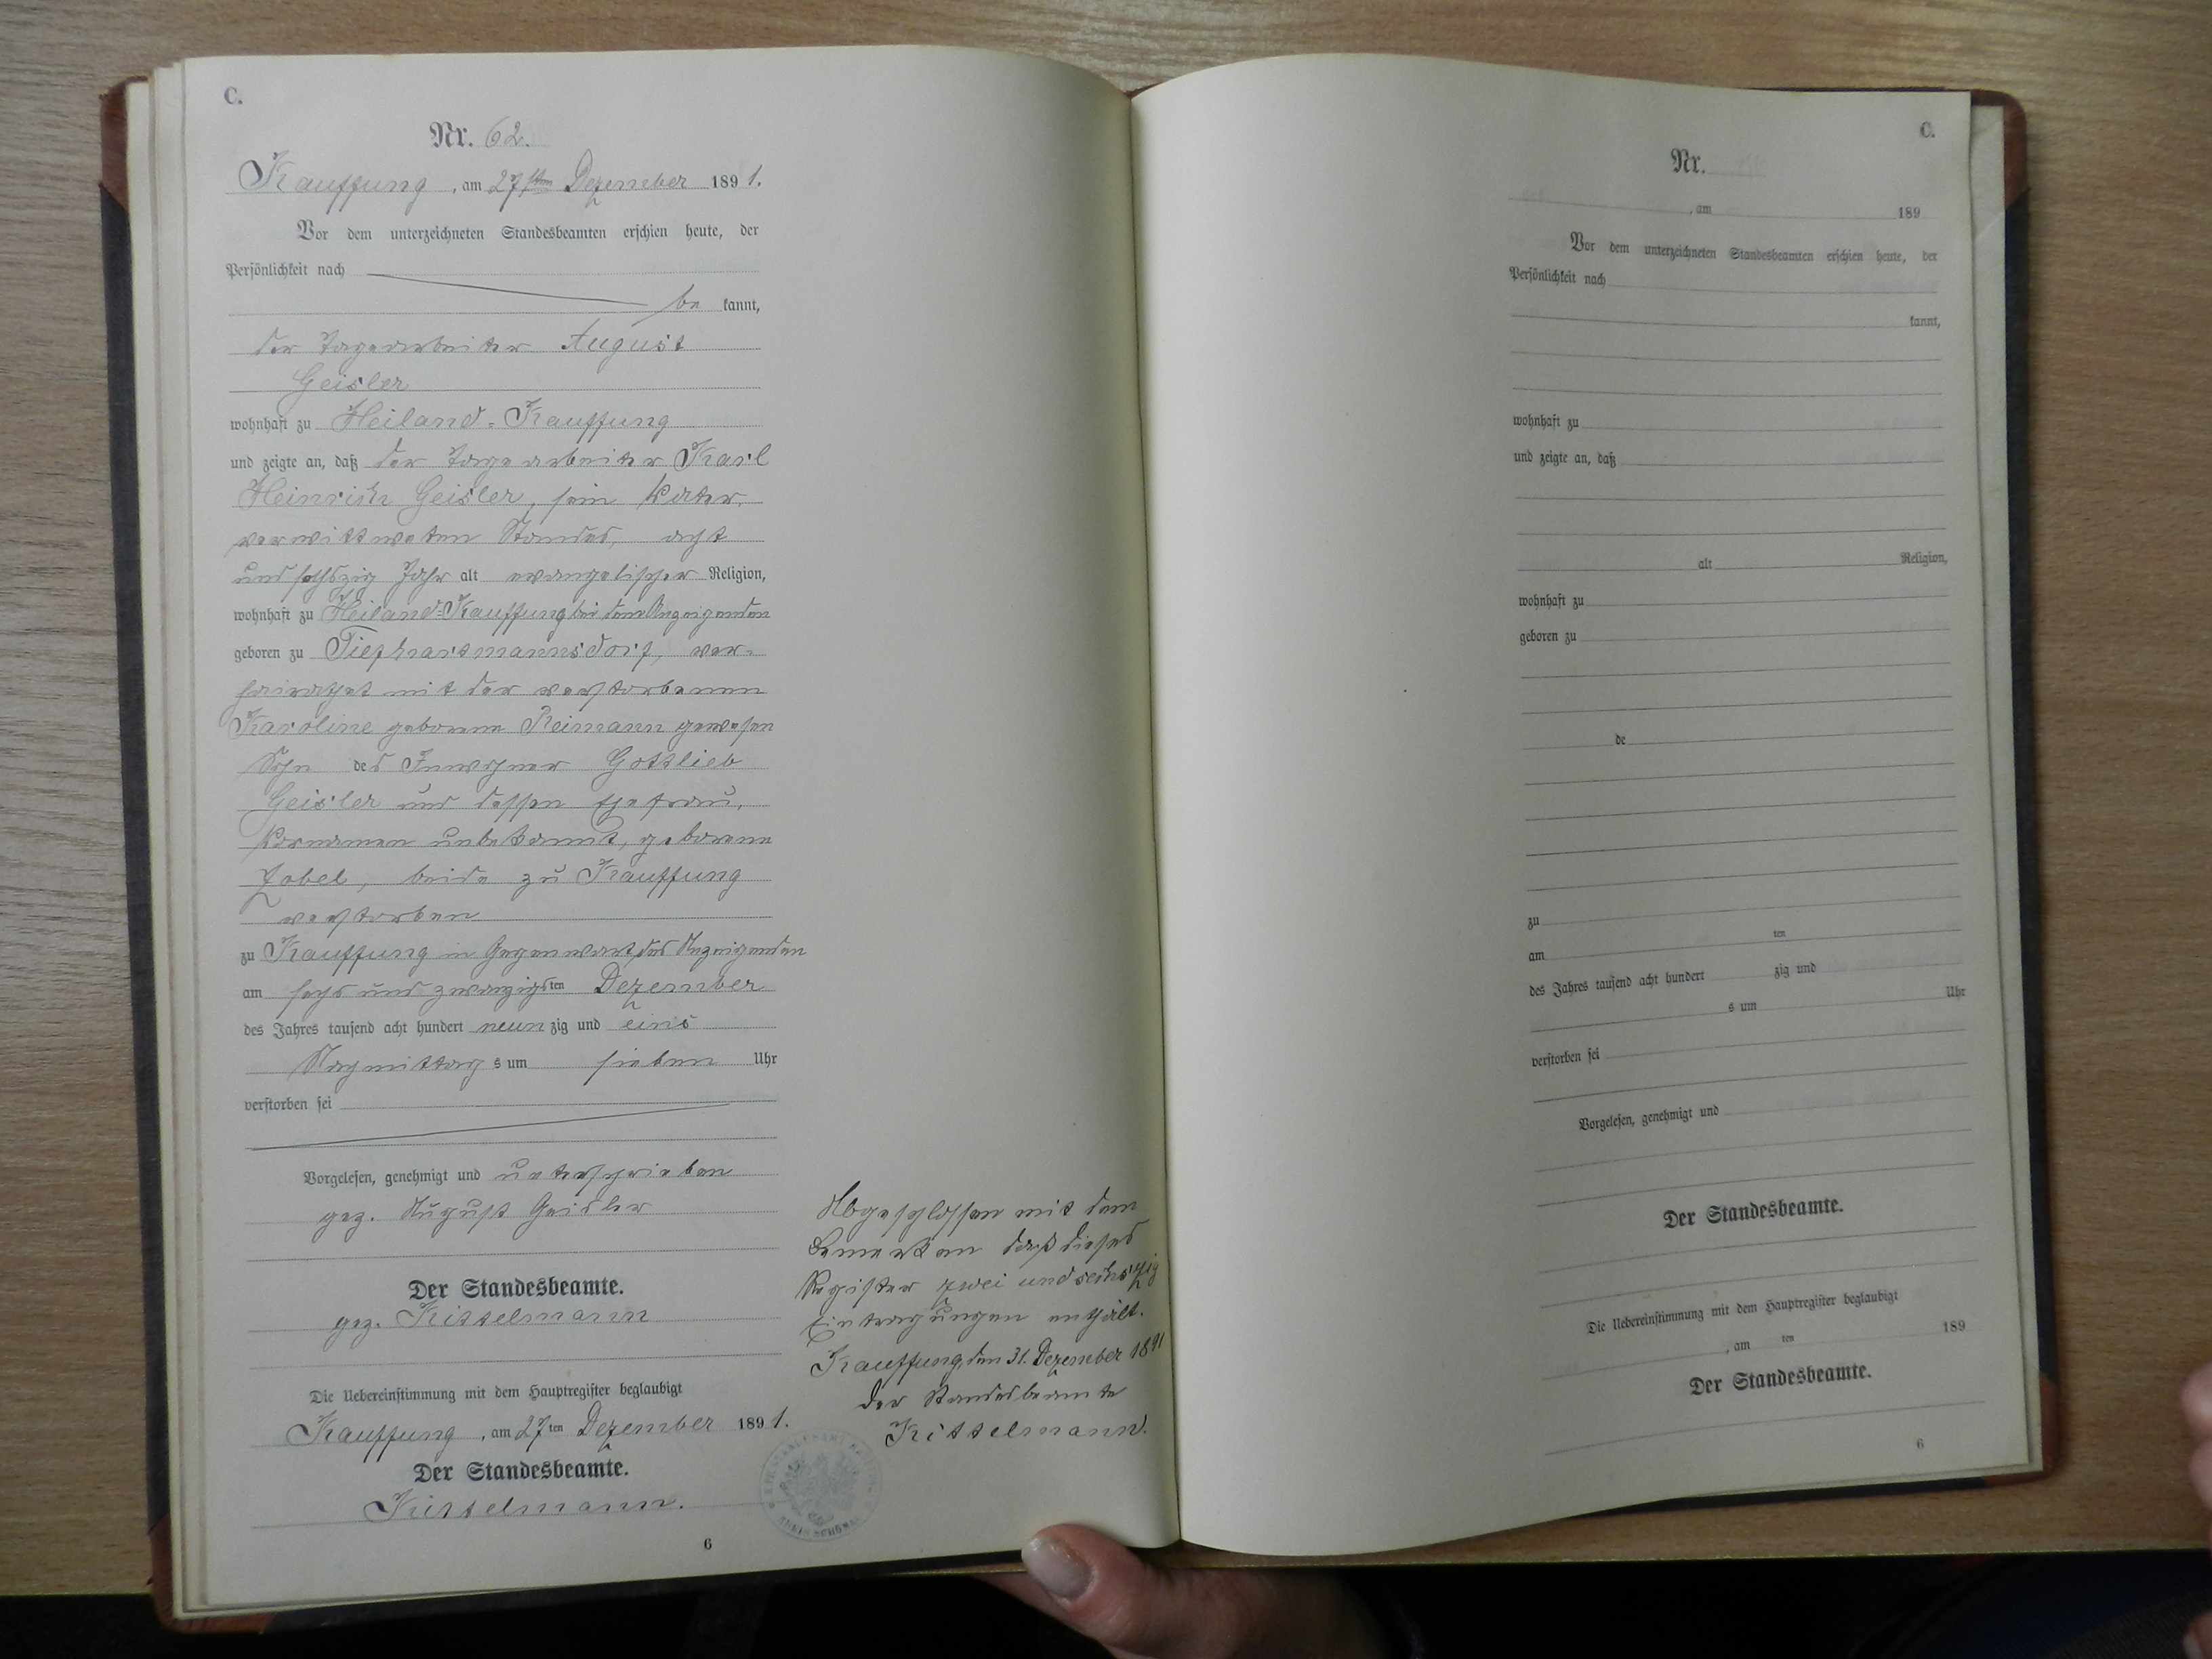 C.
Nr. 62.
Kauffung, am 27ten Dezember 1891.
Vor dem unterzeichneten Standesbeamten erschien heute, der
Persönlichkeit nach
be kannt,
der Tagearbeiter August
Geisler
wohnhaft zu Heiland-Kauffung
und zeigte an, daß der Tagearbeiter Karl
Heinrich Geisler, sein Vater,
verwittweten Standes, acht
und sechszig Jahr alt evangelischer Religion,
wohnhaft zu Heiland-Kauffung bei dem Anzeigenden
geboren zu Tiefhartmannsdorf, ver-
heirathet mit der verstorbenen
Karoline geborene Reimann gewesen
Sohn des Inwohner Gottlieb
Geisler und dessen Ehefrau,
Vornamen unbekannt, geborene
Zobel, beide zu Kauffung
verstorben
zu Kauffung in Gegenwart des Anzeigenden
am sechs und zwanzigsten Dezember
des Jahres tausend acht hundert neunzig und eins
Nachmittags um sieben Uhr
verstorben sei
Vorgelesen, genehmigt und unterschrieben
gez. August Geisler
Der Standesbeamte.
gez. Kittelmann
Die Uebereinstimmung mit dem Hauptregister beglaubigt
Kauffung, am 27ten Dezember 1891.
Der Standesbeamte.
Kittelmann.
6
Abgeschlossen mit dem
Bemerken daß dieses
Register zwei und sechszig
Eintragungen enthält.
Kauffung, den 31. Dezember 1891
Der Standesbeamte
Kittelmann.
C.
Nr.
, am 189
Vor dem unterzeichneten Standesbeamten erschien heute, der
Persönlichkeit nach
kannt,
wohnhaft zu
und zeigte an, daß
alt Religion,
wohnhaft zu
geboren zu
de
zu
am ten
des Jahres tausend acht hundert zig und
s um Uhr
verstorben sei
Vorgelesen, genehmigt und
Der Standesbeamte.
Die Uebereinstimmung mit dem Hauptregister beglaubigt
, am ten 189
Der Standesbeamte.
6